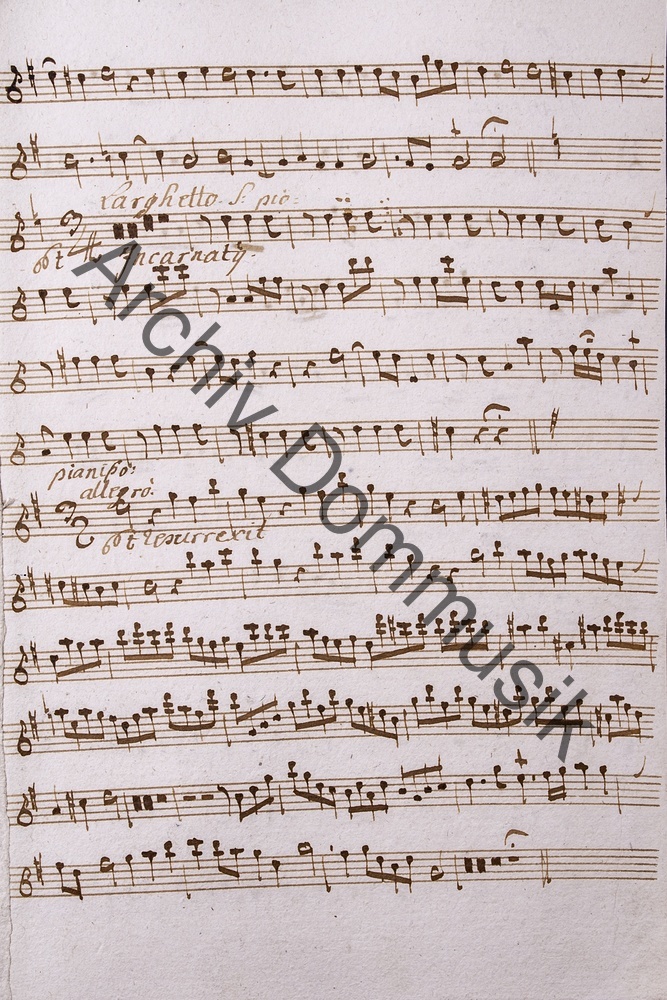 Larghetto. S: pio:
Et Incarnaty
pianißo:
allegro:
Et resurrexit
Archiv Dommusik